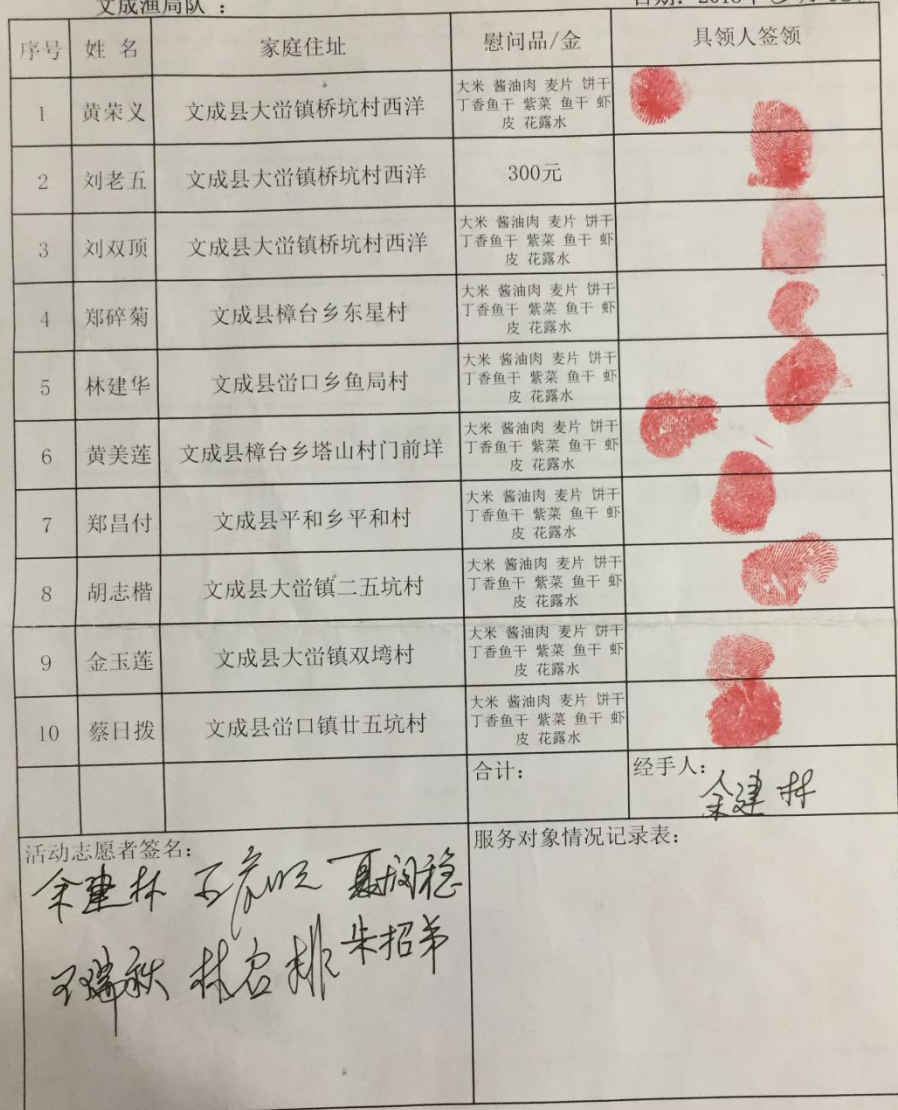 文成渔局队 ：
序号 姓 名 家庭住址 慰问品/金 具领人签领
1 黄荣义 文成县大峃镇桥坑村西洋 大米 酱油肉 麦片 饼干
丁香鱼干 紫菜 鱼干 虾
皮 花露水
2 刘老五 文成县大峃镇桥坑村西洋 300元
3 刘双顶 文成县大峃镇桥坑村西洋 大米 酱油肉 麦片 饼干
丁香鱼干 紫菜 鱼干 虾
皮 花露水
4 郑碎菊 文成县樟台乡东星村 大米 酱油肉 麦片 饼干
丁香鱼干 紫菜 鱼干 虾
皮 花露水
5 林建华 文成县峃口乡鱼局村 大米 酱油肉 麦片 饼干
丁香鱼干 紫菜 鱼干 虾
皮 花露水
6 黄美莲 文成县樟台乡塔山村门前垟 大米 酱油肉 麦片 饼干
丁香鱼干 紫菜 鱼干 虾
皮 花露水
7 郑昌付 文成县平和乡平和村 大米 酱油肉 麦片 饼干
丁香鱼干 紫菜 鱼干 虾
皮 花露水
8 胡志楷 文成县大峃镇二五坑村 大米 酱油肉 麦片 饼干
丁香鱼干 紫菜 鱼干 虾
皮 花露水
9 金玉莲 文成县大峃镇双垮村 大米 酱油肉 麦片 饼干
丁香鱼干 紫菜 鱼干 虾
皮 花露水
10 蔡日拨 文成县峃口镇廿五坑村 大米 酱油肉 麦片 饼干
丁香鱼干 紫菜 鱼干 虾
皮 花露水
合计： 经手人：
余建林
活动志愿者签名： 服务对象情况记录表：
余建林
王瑞秋 朱招弟